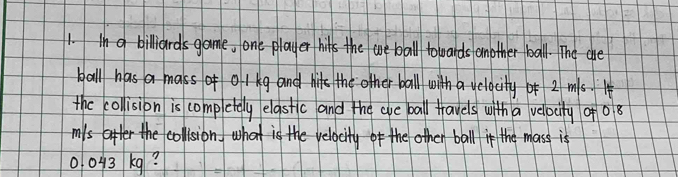 1. In a billiards game, one player hits the cue ball towards another ball. The cue
ball has a mass of 0.1 kg and hits the other ball with a velocity of 2 m/s. If
the collision is completely elastic and the cue ball travels with a velocity of 0.8
m/s after the collision, what is the velocity of the other ball if the mass is
0.043 kg?